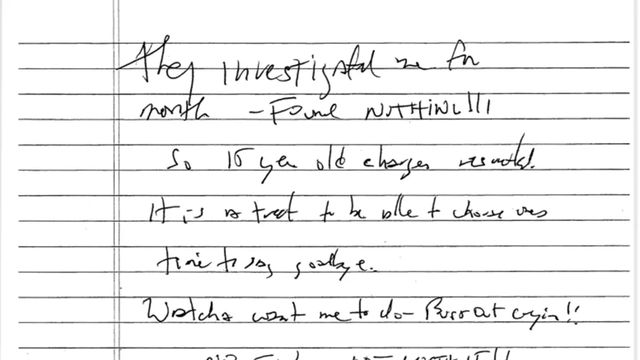 They investigated me for
month - Found NOTHING!!!
So year old charges
It is a treat to be able to choose ones
time to say goodbye.
Watcha want me to do - Burst out cryin!!
NO FUN